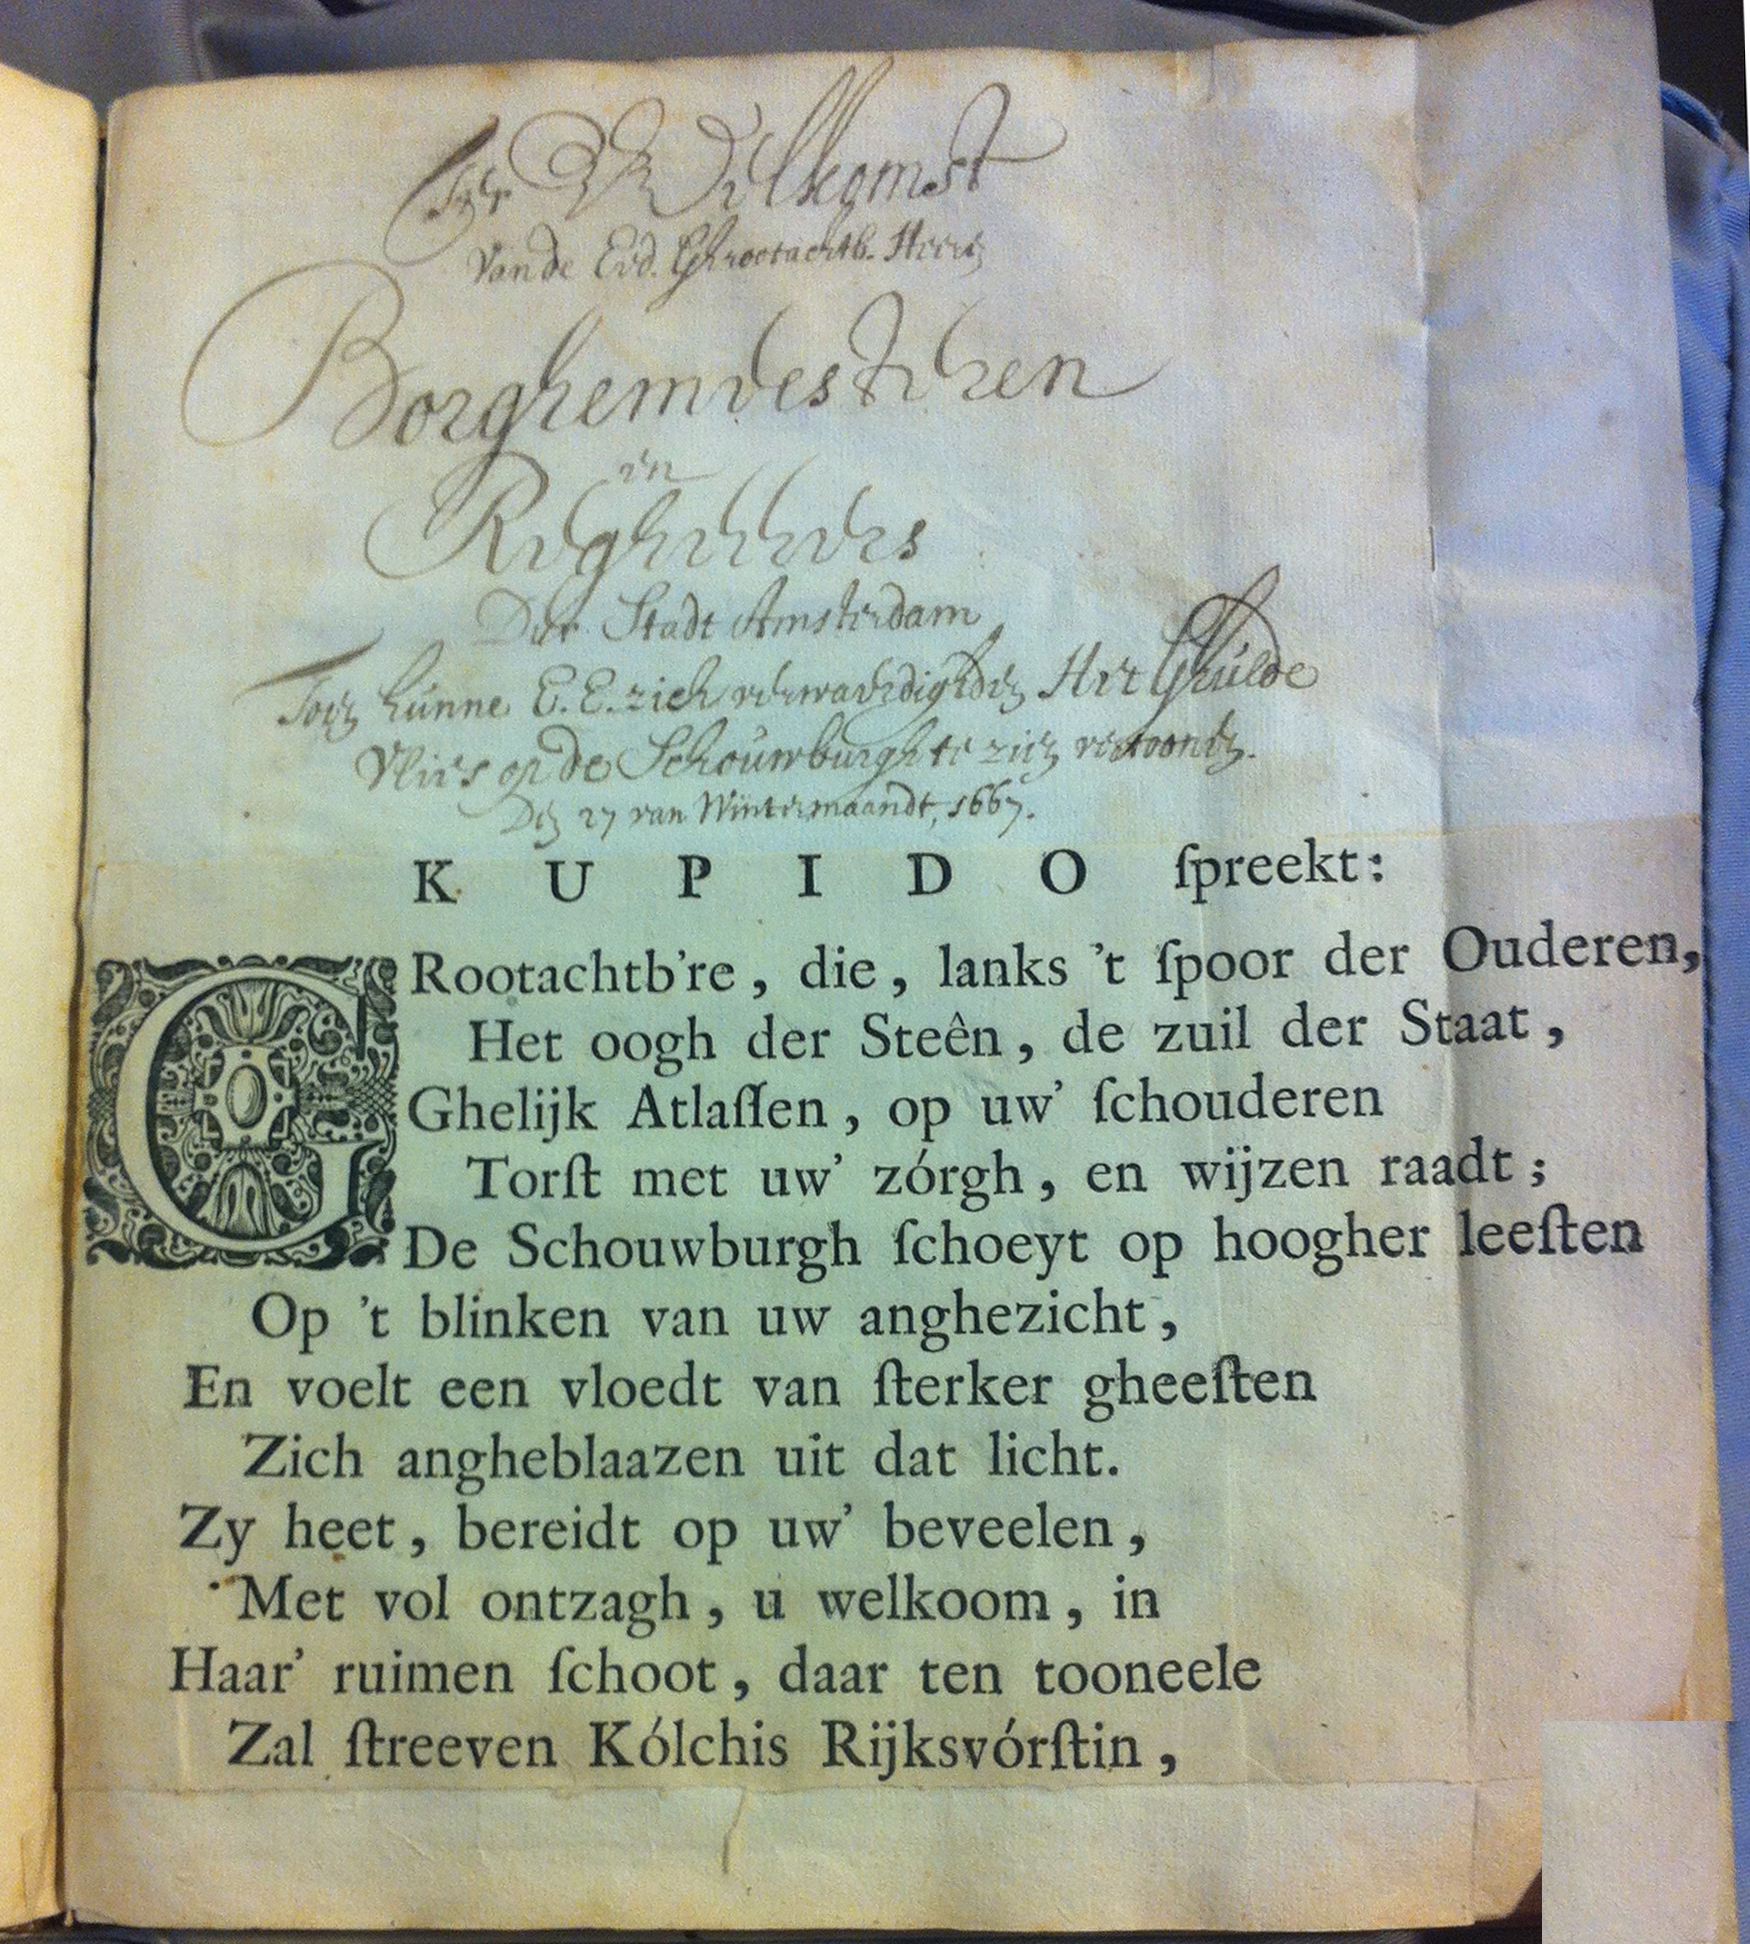 Ter Wilkomst
Van de Eed. Ghrootachtb. Heere
Borghemeesteren
en
Regheerders
Der Stadt Amsterdam
Toen hunne E. E. zich verwaerdighden Het Ghulde
Vlies op de Schouwburgh te zien vertoonen.
Den 27 van Wintermaandt, 1667.
KUPIDO ſpreekt:
GRootachtb're, die, lanks 't ſpoor der Ouderen,
Het oogh der Steên, de zuil der Staat,
Ghelijk Atlaſſen, op uw' ſchouderen
Torſt met uw' zórgh, en wijzen raadt;
De Schouwburgh ſchoeyt op hoogher leeſten
Op 't blinken van uw anghezicht,
En voelt een vloedt van ſterker gheeſten
Zich angheblaazen uit dat licht.
Zy heet, bereidt op uw' beveelen,
Met vol ontzagh, u welkoom, in
Haar' ruimen ſchoot, daar ten tooneele
Zal ſtreeven Kólchis Rijksvórſtin,